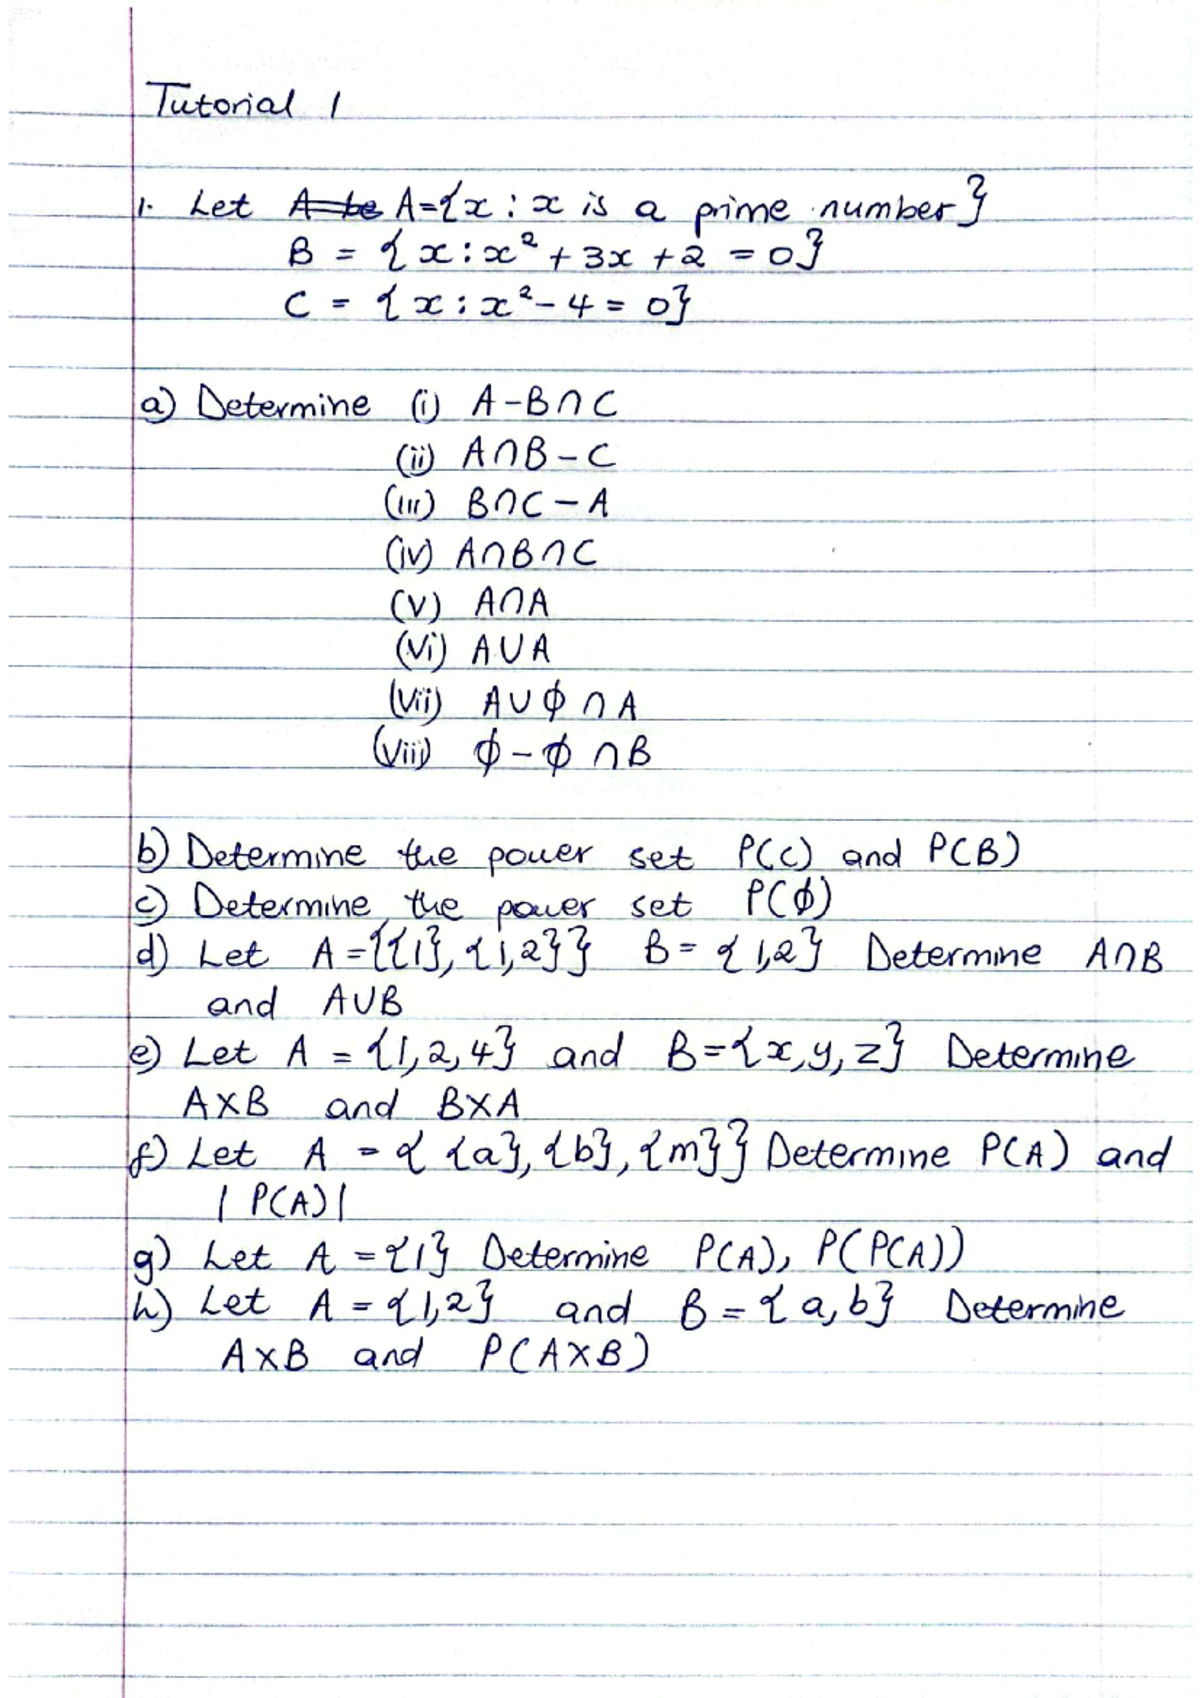 Tutorial 1
1. Let A be A={x : x is a prime number}
B = {x : x² + 3x + 2 = 0}
C = {x : x² - 4 = 0}
a) Determine (i) A - B ∩ C
(ii) A ∩ B - C
(iii) B ∩ C - A
(iv) A ∩ B ∩ C
(v) A ∩ A
(vi) A ∪ A
(vii) A ∪ ϕ ∩ A
(viii) ϕ - ϕ ∩ B
b) Determine the power set P(C) and P(B)
c) Determine the power set P(ϕ)
d) Let A = {{1}, {1,2}} B = {1,2} Determine A ∩ B
and A ∪ B
e) Let A = {1, 2, 4} and B = {x, y, z} Determine
A X B and B X A
f) Let A = { {a}, {b}, {m}} Determine P(A) and
| P(A) |
g) Let A = {1} Determine P(A), P(P(A))
h) Let A = {1,2} and B = {a, b} Determine
A X B and P(A X B)